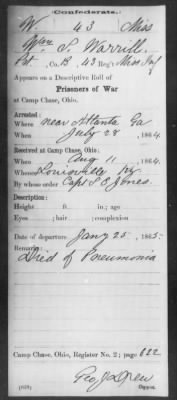 Confederate.
W 43 Miss
Wm. S. Worrill.
Pvt., Co. B, 43 Reg't Miss Inf
Appears on a Descriptive Roll of
Prisoners of War
at Camp Chase, Ohio.
Arrested:
Where near Atlanta Ga
When July 28, 1864.
Received at Camp Chase, Ohio:
When Aug 11, 1864.
Whence Louisville Ky
By whose order Capt S E Jones.
Description:
Height ft. in.; age
Eyes ; hair ; complexion
Date of departure Jany 25, 1865.
Remarks:
Died of Pneumonia
Camp Chase, Ohio, Register No. 2; page 622
Geo. J. Drew
(639) Copyist.